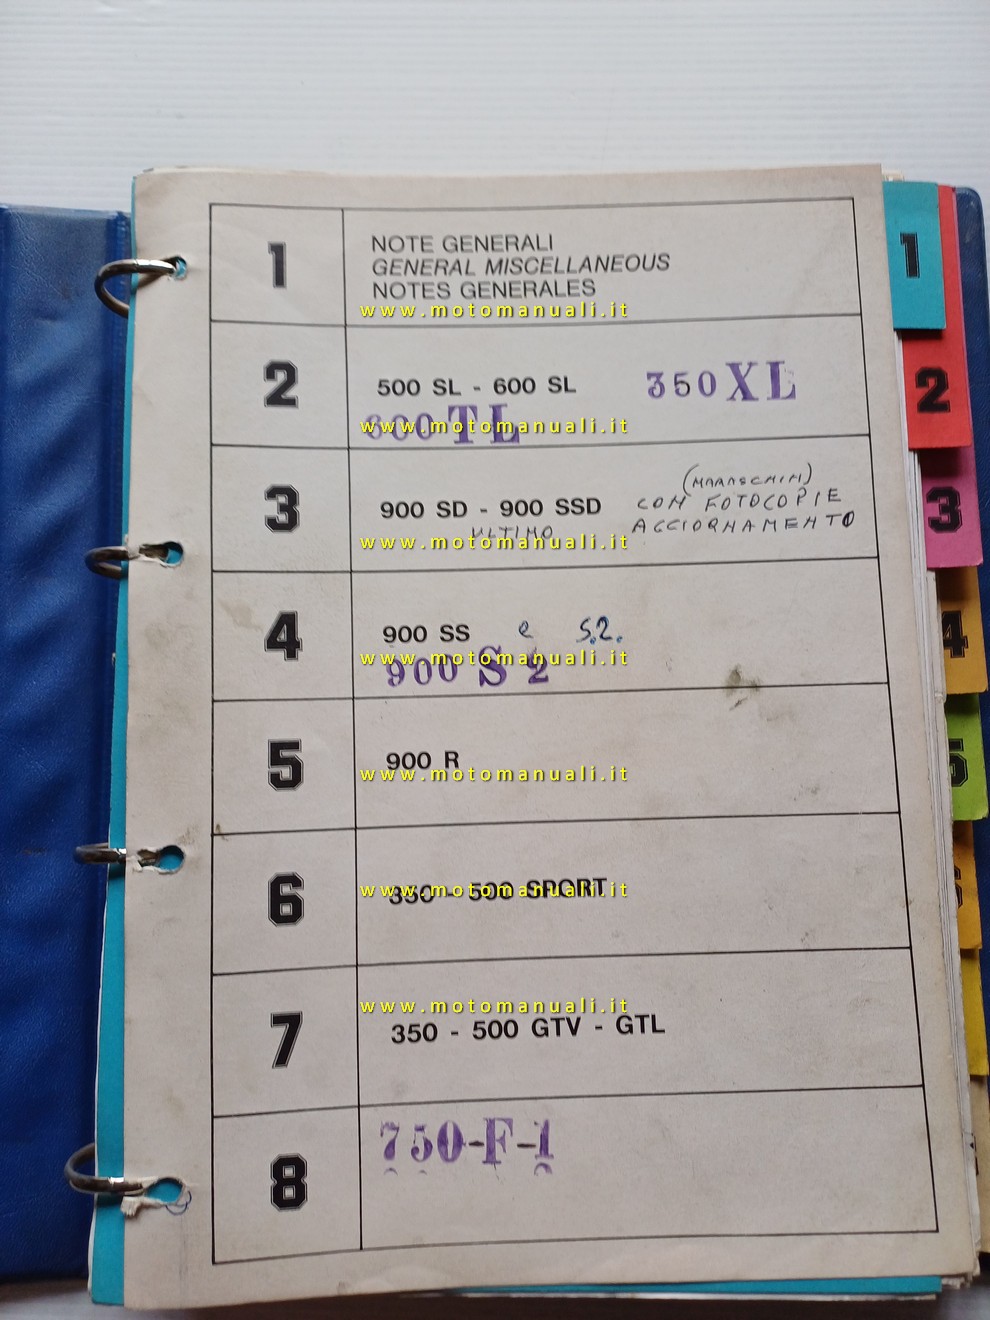 1
NOTE GENERALI
GENERAL MISCELLANEOUS
NOTES GENERALES
www.motomanuali.it
2
500 SL - 600 SL 350 XL
600 TL
www.motomanuali.it
3
900 SD - 900 SSD
ULTIMO
(MARASCHIM)
COM FOTOCOPIE
AGGIORNAMENTO
www.motomanuali.it
4
900 SS e S.2.
900 S 2
www.motomanuali.it
5
900 R
www.motomanuali.it
6
350 - 500 SPORT
www.motomanuali.it
7
www.motomanuali.it
350 - 500 GTV - GTL
8
750-F-1
1
2
3
4
5
6